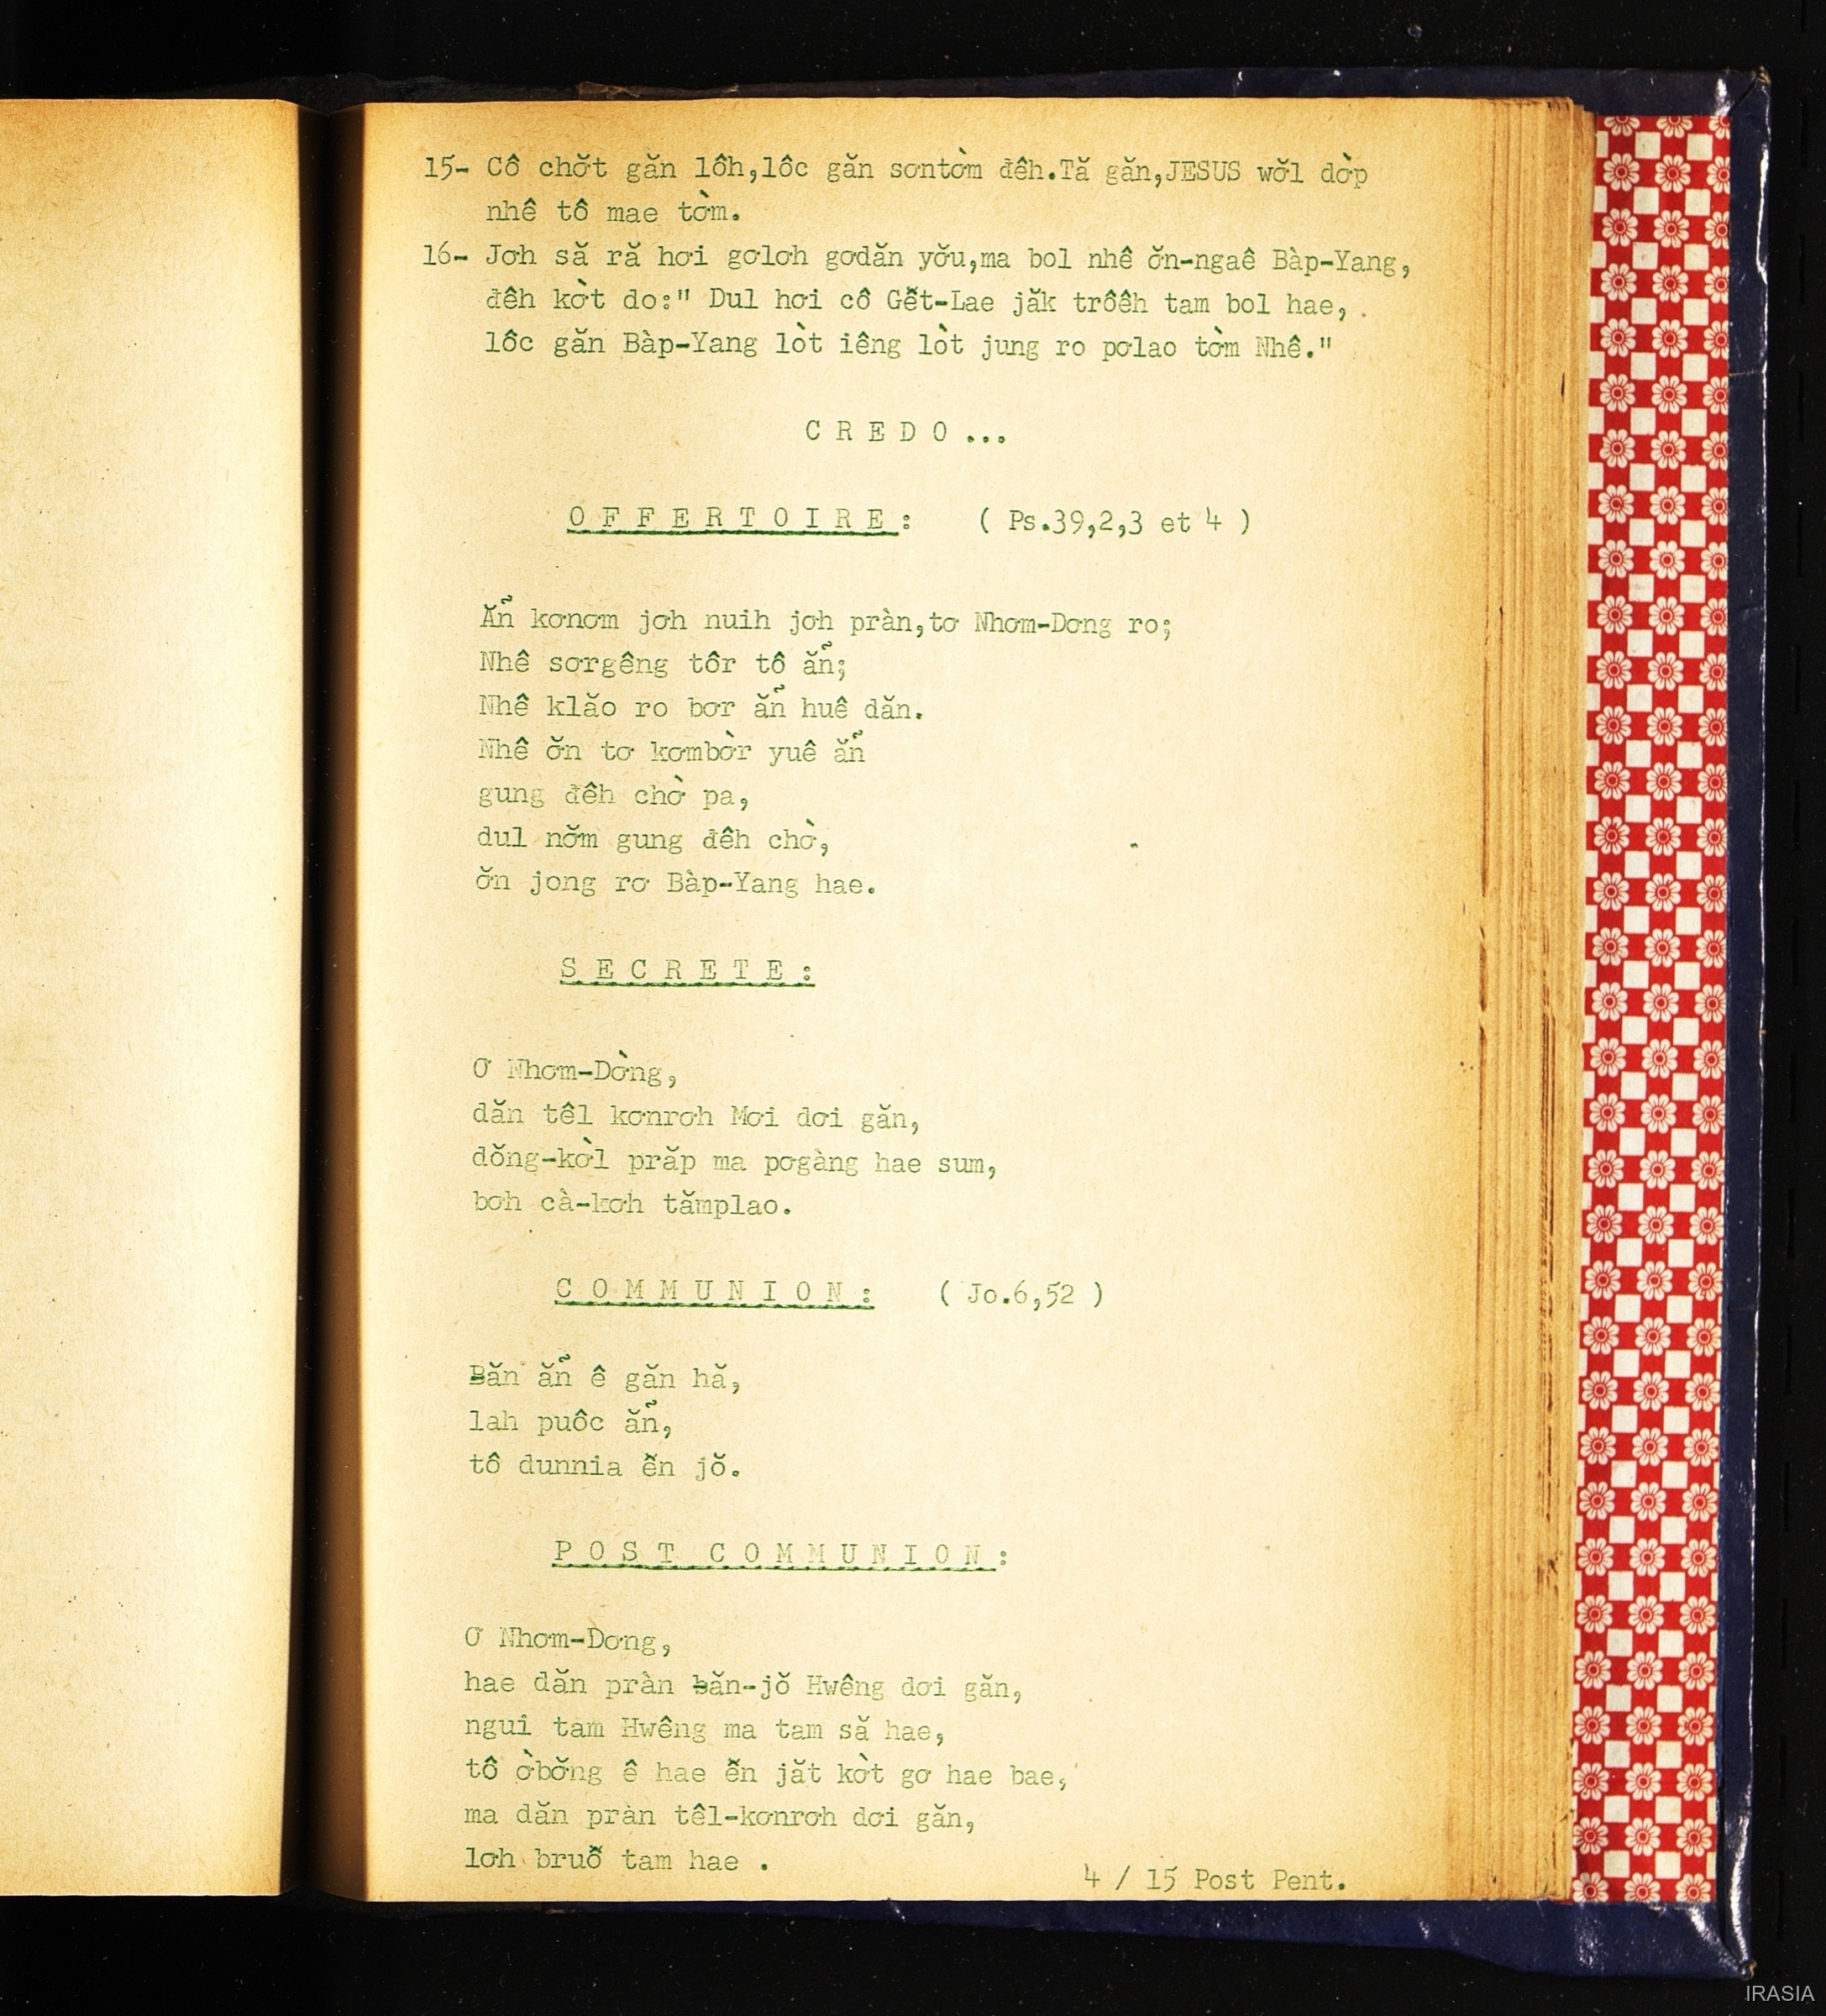 15- Cô chơ̆t găn lôh,lôc găn sơntờm đêh.Tă găn,JESUS wơ̆l dờp
nhê tô mae tờm.
16- Jơh să ră hơi gơlơh gơdăn yơ̆u,ma bol nhê ơ̆n-ngaê Bàp-Yang,
đêh kờt do:" Dul hơi cô Gễt-Lae jăk trôêh tam bol hae,
lôc găn Bàp-Yang lòt iêng lòt jung ro pơlao tờm Nhê."
C R E D O ...
O F F E R T O I R E : ( Ps.39,2,3 et 4 )
Ẵn kơnơm jơh nuih jơh pràn,tơ Nhơm-Dơng ro;
Nhê sơrgêng tôr tô ẵn;
Nhê klăo ro bơr ẵn huê dăn.
Nhê ơ̆n tơ kơmbờr yuê ẵn
gung đêh chờ pa,
dul nơ̆m gung đêh chờ,
ơ̆n jong rơ Bàp-Yang hae.
S E C R E T E :
Ơ Nhơm-Dờng,
dăn têl kơnrơh Mơi dơi găn,
dŏng-kờl prăp ma pơgàng hae sum,
bơh cà-kơh tămplao.
C O M M U N I O N : ( Jo.6,52 )
Ƀăn ẵn ê găn hă,
lah puôc ẵn,
tô dunnia ễn jŏ.
P O S T C O M M U N I O N :
Ơ Nhơm-Dơng,
hae dăn pràn ƀăn-jŏ Hwêng dơi găn,
ngui tam Hwêng ma tam să hae,
tô ờbơ̆ng ê hae ễn jăt kờt gơ hae bae,
ma dăn pràn têl-kơnrơh dơi găn,
lơh bruỗ tam hae .
4 / 15 Post Pent.
IRASIA